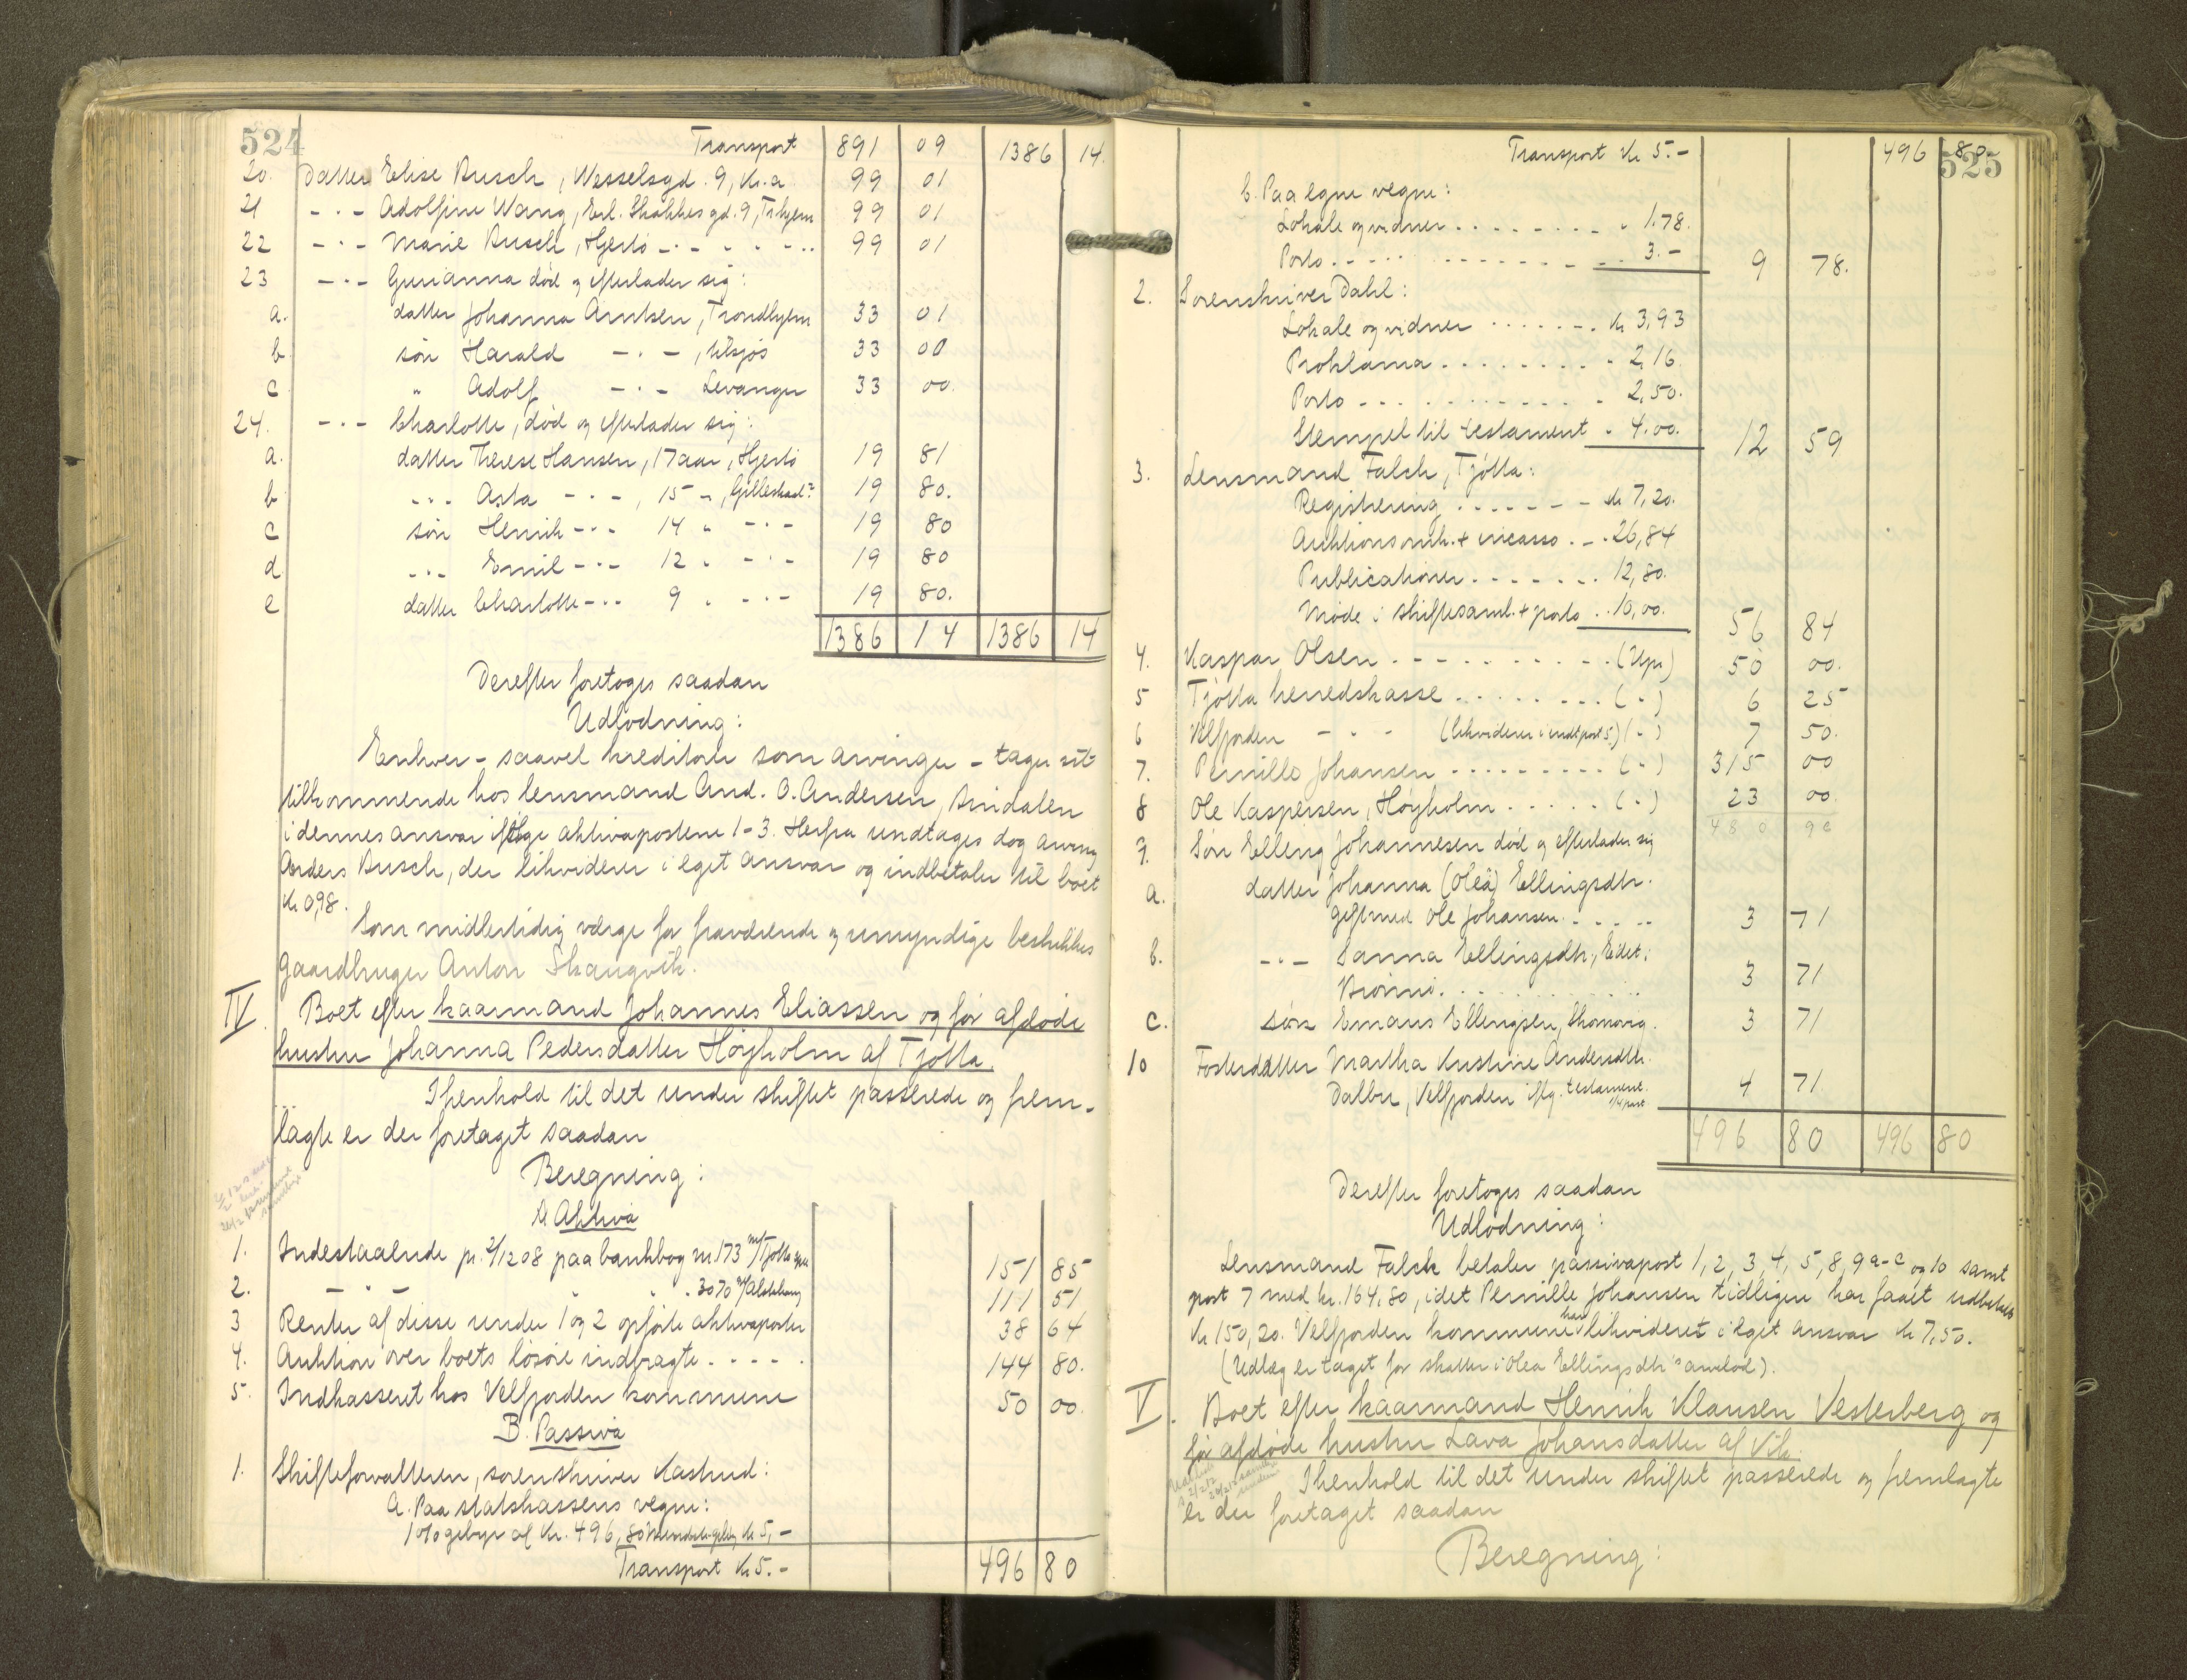 524
Transport 891 09 1386 14.
20. Datter Elise Busch, Wesselsgd. 9, Kr.a 99 01
21 - " - Adolfine Wang, Erl. Skakkes gd. 9, Trhjem 99 01
22 - " - Marie Busch, Hjertö - " - 99 01
23 - " - Gurianna död og efterlader sig:
a. datter Johanna Arntsen, Trondhjem 33 01
b sön Harald - " - , 33 00
c " Adolf - " - Levanger 33 00.
24. - " - Charlotte, död og efterlader sig:
a. datter Therese Hansen, 17 aar, Hjertö 19 81
b - " - Asta - " - , 15 " , 19 80.
c sön Henrik - " - 14 " - " - 19 80
d - " - Emil - " - 12 " - " - 19 80
e datter Charlotte - " - 9 " - " - 19 80.
1386 14 1386 14
Derefter foretoges saadan
Udlodning:
Enhver - saavel kreditorer som arvinger - tager sit
tilkommende hos lensmand And. O. Andersen,
i dennes ansvar ifölge aktivapostene 1-3. Herfra undtages dog arving
Anders Busch, der likviderer i eget ansvar og indbetaler til boet
Kr 0,98.
Som midlertidig værge for fraværende og umyndige beskikkes
gaardbruger Anton Skaugvik.
IV. Boet efter kaarmand Johannes Eliassen og för afdöde
hustru Johanna Pedersdatter Höyholm af Tjötta.
I henhold til det under skiftet passerede og frem-
lagte er der foretaget saadan
Beregning:
A. Aktiva
1. Indestaaende pr. 2/12 08 paa bankbog nr 173 m/Tjötta spb 151 85
2. - " - " " 3070 m/Alstahaug 111 51
3 Renter af disse under 1 og 2 opförte aktivaposter 38 64
4. Auktion over boets lösöre indbragte . . . . . 144 80.
5. Indkasseret hos Velfjorden kommune 50 00.
B. Passiva
1. Skifteforvalteren, sorenskriver Kastrud:
a. Paa statskassens vegne:
1% gebyr af Kr. 496,80 Kr. 5,-
Transport Kr 5.- 496 80
525
Transport Kr 5.- 496 80
b. Paa egne vegne:
Lokale og vidner . . . . . . . . " 1.78.
Porto . . . . . . . . . . . 3.- 9 78.
2. Sorenskriver Dahl:
Lokale og vidner . . . . . . Kr 3,93
Proklama . . . . . . . . " 2,16.
Porto . . . . . . . . . . " 2,50.
Stempel til testament " 4.00. 12 59
3. Lensmand Falch, Tjötta:
Registrering . . . . . . Kr 7,20.
Auktionsomk. + incasso . . " 26,84
Publicationer . . . . . . 12,80.
Möde i skiftesaml. + porto . . 10,00. 56 84
4. Kaspar Olsen . . . . . . . . . . (Upr) 50 00.
5 Tjötta herredskasse . . . . . . . . ( " ) 6 25
6 Velfjorden - " - (likviderer i indt. post 5.) ( " ) 7 50.
7. Pernille Johansen . . . . . . . . . ( " ) 315 00
8 Ole Kaspersen, Höyholm . . . . . ( " ) 23 00.
480 96
9. Sön Elling Johannesen död og efterlader sig
a. datter Johanna (Olea) Ellingsdtr.
gift med Ole Johansen . . . . . 3 71
b. - " - Sanna Ellingsdtr., Eidet;
Brönnö. . . . . . . . . . . . 3 71
c. sön Emans Ellingsen, 3 71
10 Fosterdatter Martha Kristine Andersdtr.
Dalbu, Velfjorden iflg. testament. 4 71
496 80 496 80
Derefter foretoges saadan
Udlodning:
Lensmand Falch betaler passivapost 1, 2, 3, 4, 5, 8, 9 a-c og 10 samt
post 7 med kr. 164.80, idet Pernille Johansen tidligere har faaet udbetalt
Kr 150,20. Velfjorden kommune har likvideret i eget ansvar Kr 7,50.
(Udlæg er taget for skatter i Olea Ellingsdtr's arvelod).
V. Boet efter kaarmand Henrik Klausen Vesterberg og
för afdöde hustru Lava Johansdatter af Vik.
I henhold til det under skiftet passerede og fremlagte
er der foretaget saadan
Beregning: